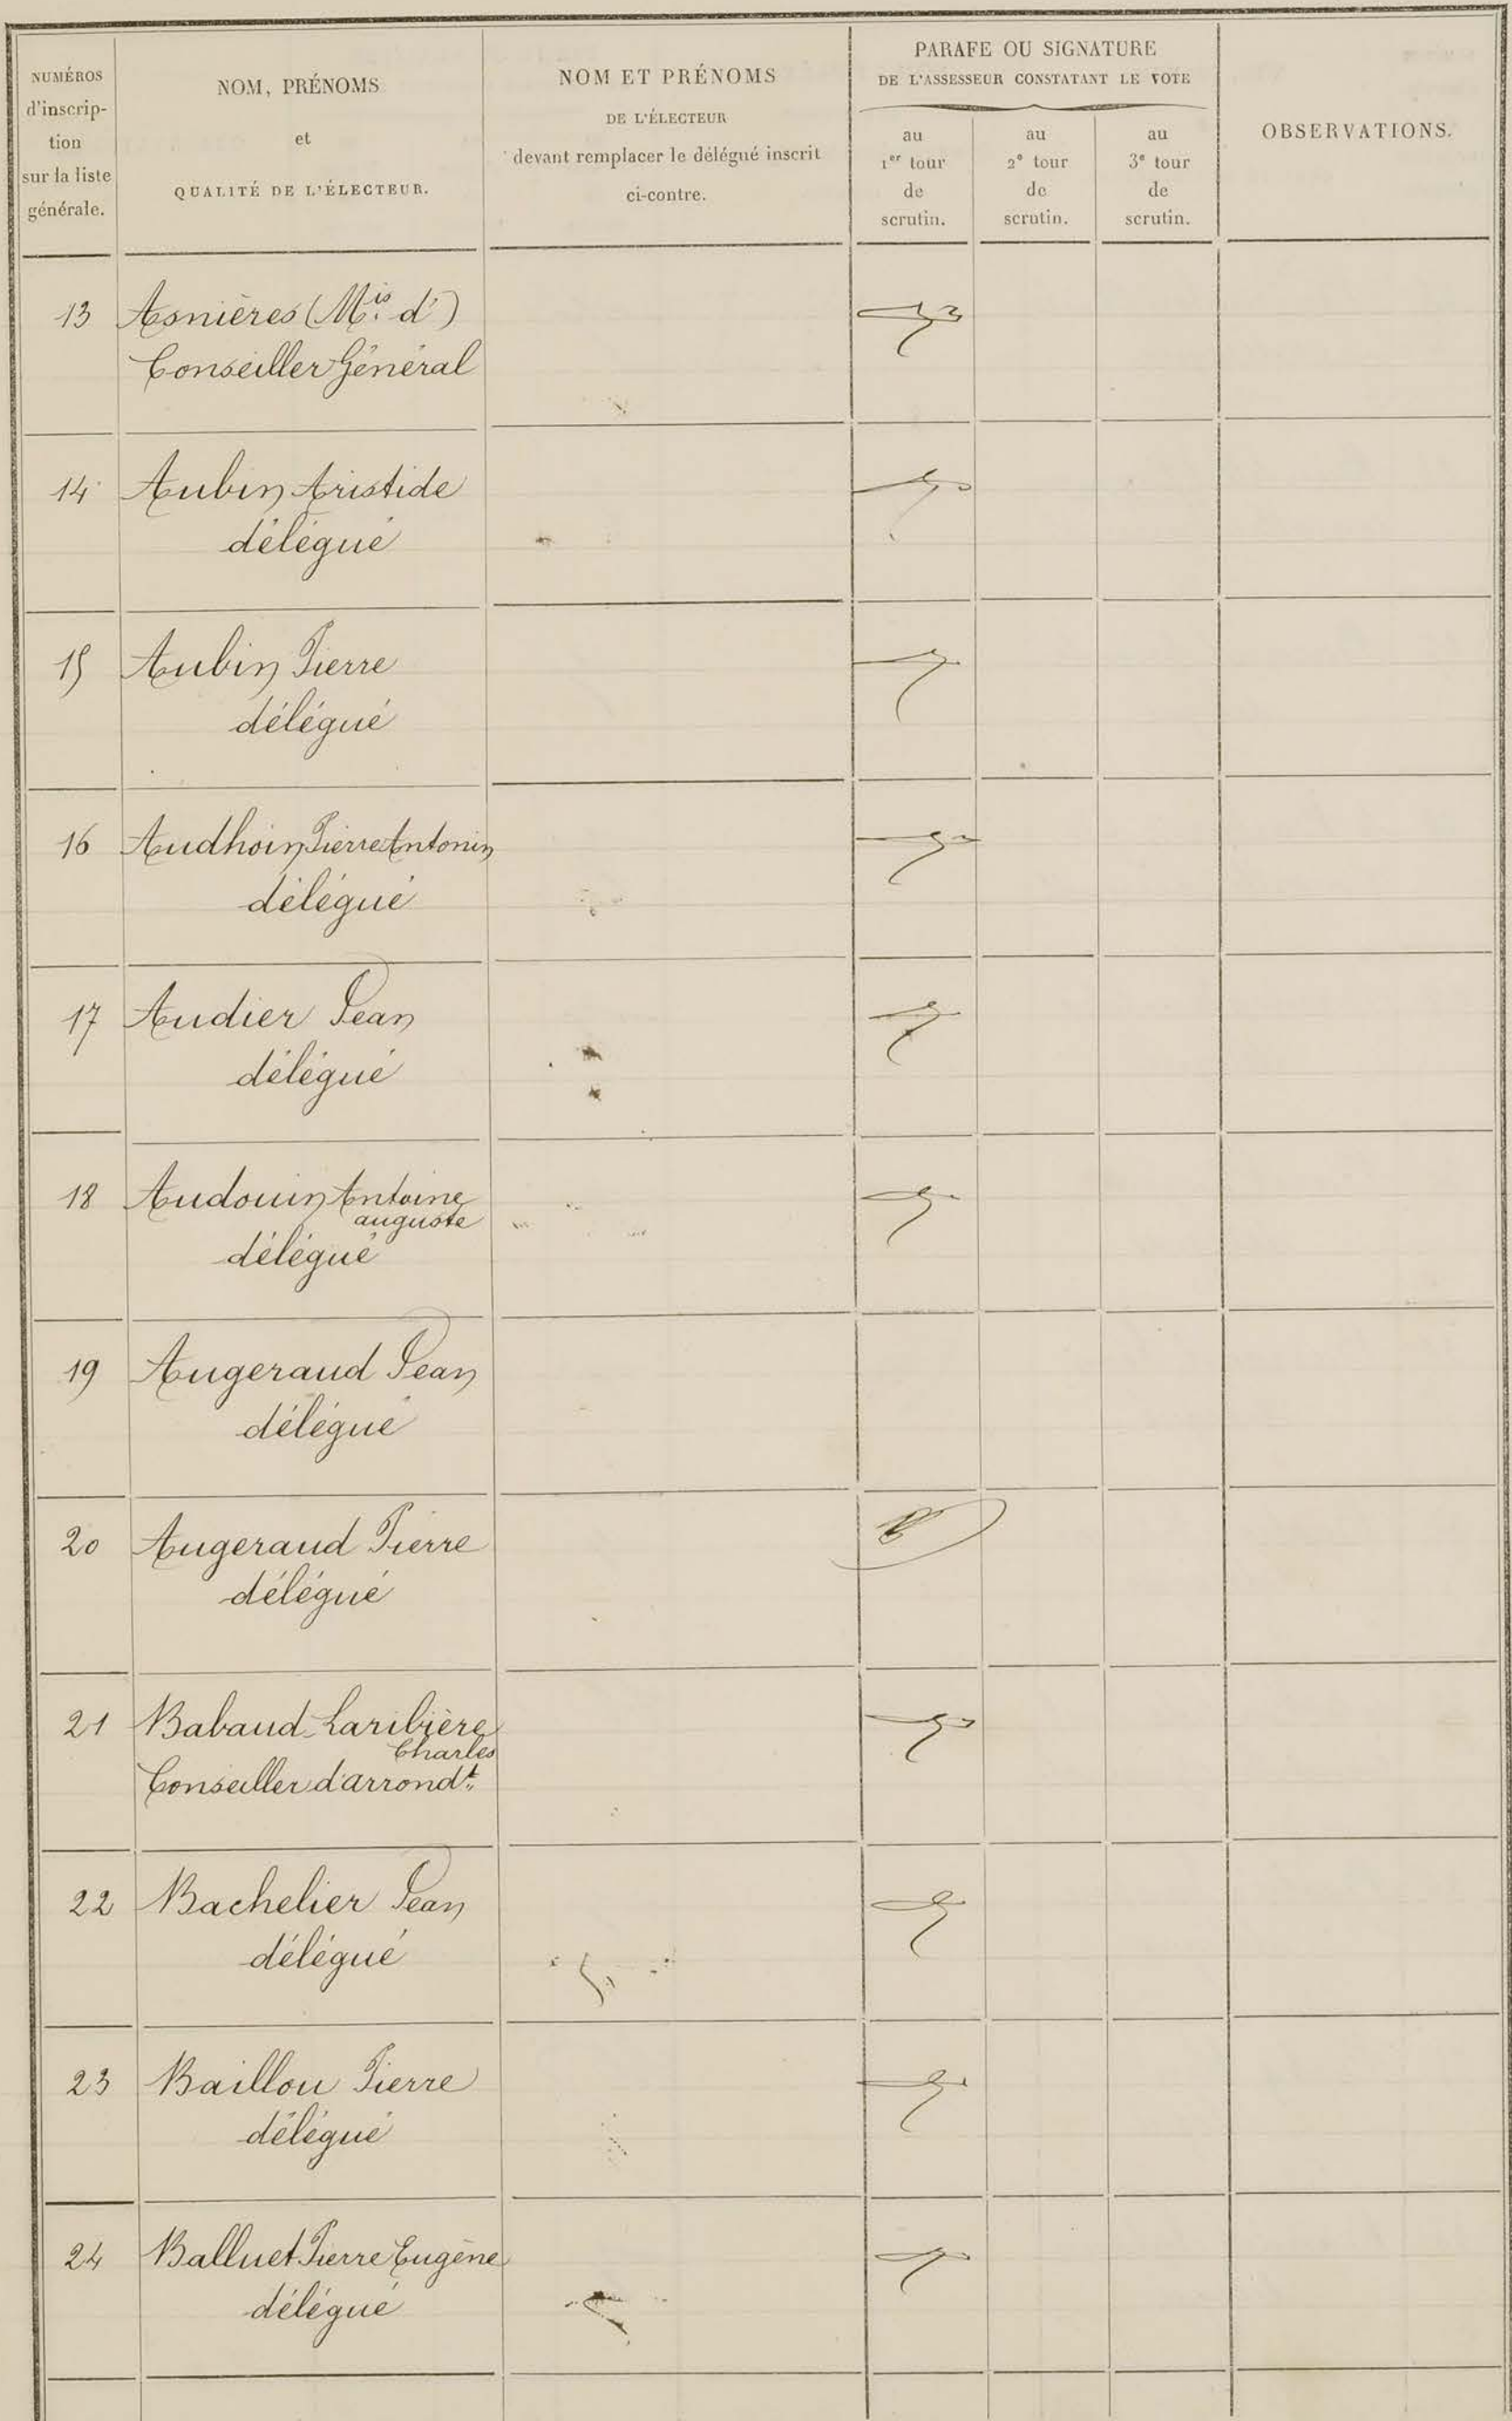 NUMÉROS
d'inscrip-
tion
sur la liste
générale.
NOM, PRÉNOMS
et
QUALITÉ DE L'ÉLECTEUR.
NOM ET PRÉNOMS
DE L'ÉLECTEUR
devant remplacer le délégué inscrit
ci-contre.
PARAFE OU SIGNATURE
DE L'ASSESSEUR CONSTATANT LE VOTE
au
1er tour
de
scrutin.
au
2e tour
de
scrutin.
au
3e tour
de
scrutin.
OBSERVATIONS.
13 Asnières (Mis d')
Conseiller Général
14 Aubin Aristide
délégué
15 Aubin Pierre
délégué
16 Audhoin Pierre Antonin
délégué
17 Audier Jean
délégué
18 Audouin Antoine
auguste
délégué
19 Augeraud Jean
délégué
20 Augeraud Pierre
délégué
21 Babaud-Laribière
Charles
Conseiller d'arrondt.
22 Bachelier Jean
délégué
23 Baillou Pierre
délégué
24 Balluet Pierre Eugène
délégué